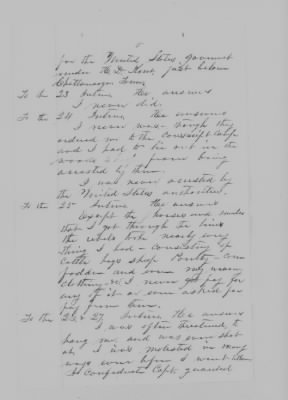 for the United States, Goverment
under
Chattanooga Tenn
To the 23 Inter He answers
I never did.
To the 24 Inter he answers
I never was though they
ordered me to the Conscript Camp
and I had to lie out in the
woods being
arrested by them.
I was never arrested by
the United States authorities.
To the 25 Inter he answers
Except the horses and mules
that I got through the lines
the rebels took nearly every
thing I had - Consisting of
Cattle hogs sheep Poultry - Corn
fodder and even my
clothing &c. I never got pay for
any of it or even asked for
pay from them.
To the 26 & 27 Inter. He answers
I was often threatened, to
hang me, and was even shot
at, I was molested in many
ways even before I went
a Confederate Capt. guarded